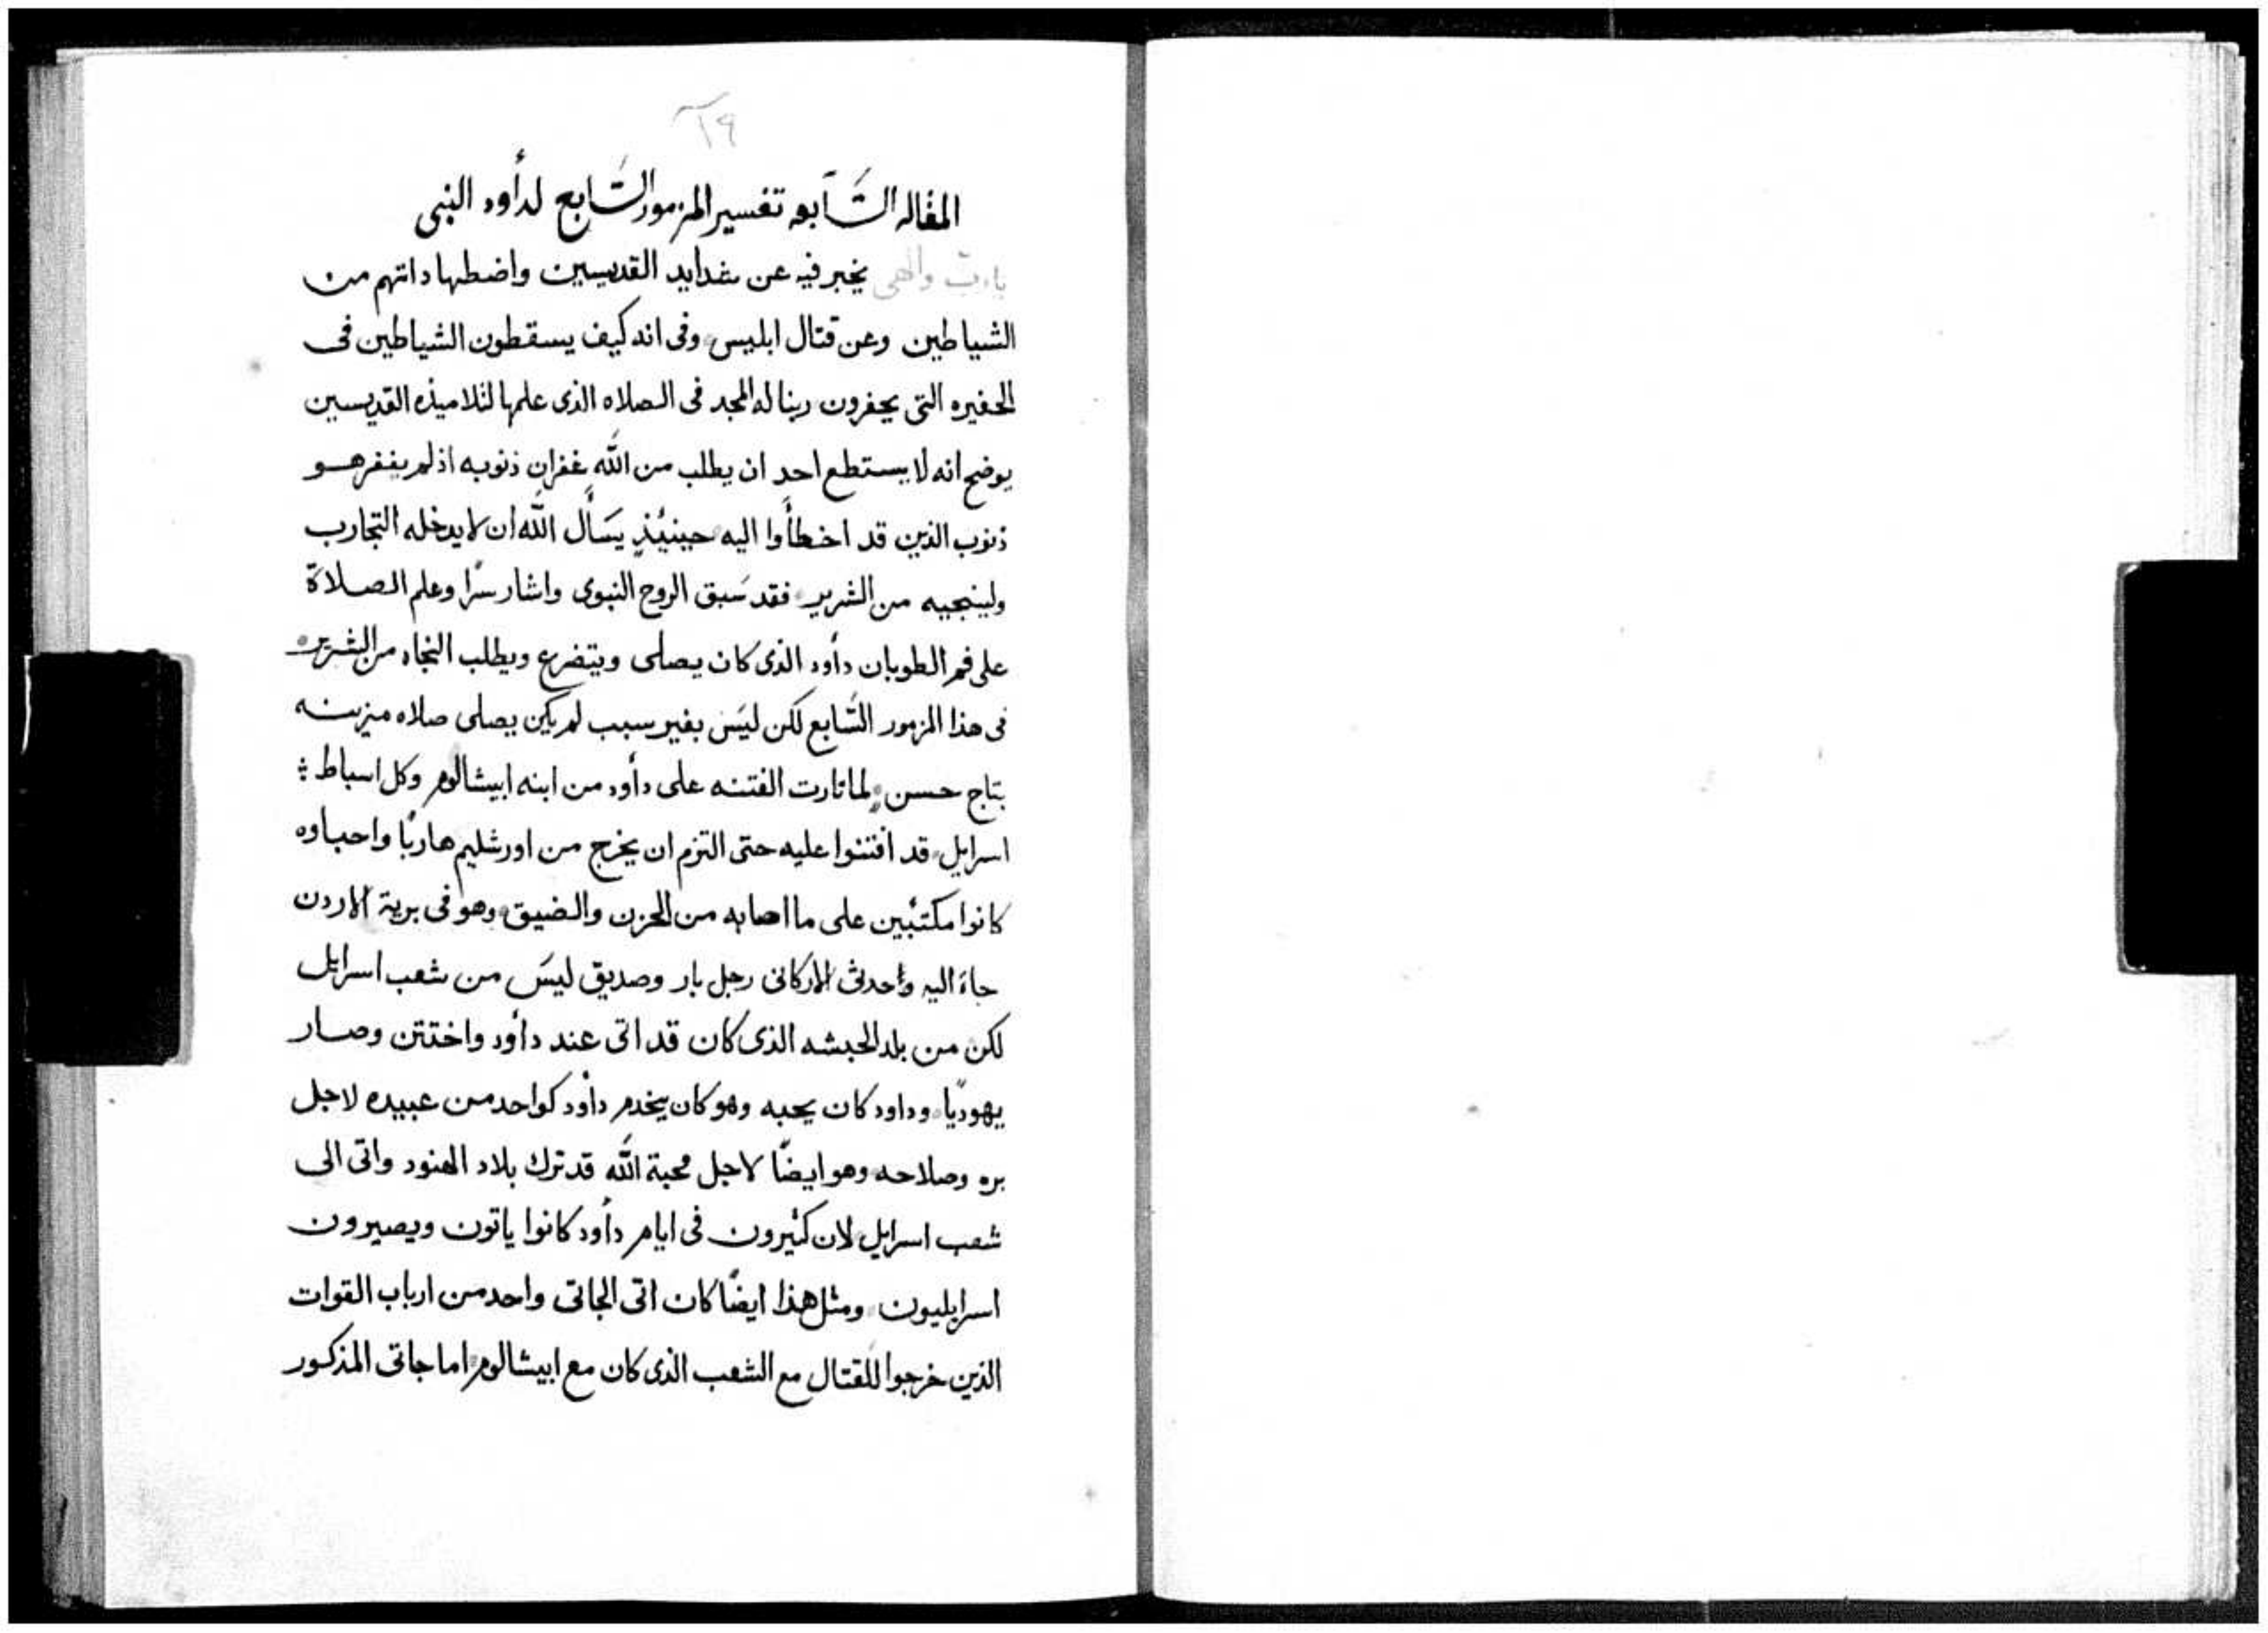 ١٩
المقاله السَّابعه تفسير المزمور السَّابع لدأود النبى
يارب والهى يخبر فيه عن شدايد القديسين واضطهاداتهم من
الشياطين وعن قتال ابليس وفى انه كيف يسقطون الشياطين فى
الحفيره التى يحفرون ربنا له المجد فى الصلاه الذى علمها لتلاميذه القديسين
يوضح انه لا يستطع احد ان يطلب من الله غفران ذنوبه اذ لم يغفر هو
ذنوب الذين قد اخطأوا اليه حينيُذٍ يسَأل الله ان لا يدخله التجارب
ولينجيه من الشرير فقد سَبق الروح النبوى واشار سرًا وعلم الصلاة
على فم الطوبان دأود الذى كان يصلى ويتضرع ويطلب النجاه من الشرير
فى هذا المزمور السَّابع لكن ليسَ بغير سبب لم يكن يصلى صلاه مزينه
بتاج حسن لما تارت الفتنه على دأود من ابنه ابيشالوم وكل اسباط
اسرايل قد افتنوا عليه حتى التزم ان يخرج من اورشليم هاربًا واحباوه
كانوا مكتئبين على ما اصابه من الحزن والضيق وهو فى برية الاردن
جاءَ اليه واحدثى الاركانى رجل بار وصديق ليسَ من شعب اسرايل
لكن من بلد الحبشه الذى كان قد اتى عند دأود واختتن وصار
يهوديًا وداود كان يحبه وهو كان يخدم دأود كواحد من عبيده لاجل
بره وصلاحه وهو ايضًا لاجل محبة الله قد ترك بلاد الهنود واتى الى
شعب اسرايل لان كثيرون فى ايام دأود كانوا ياتون ويصيرون
اسرايليون ومثل هذا ايضًا كان اتى الجاتى واحد من ارباب القوات
الذين خرجوا للقتال مع الشعب الذى كان مع ابيشالوم اما جاتى المذكور